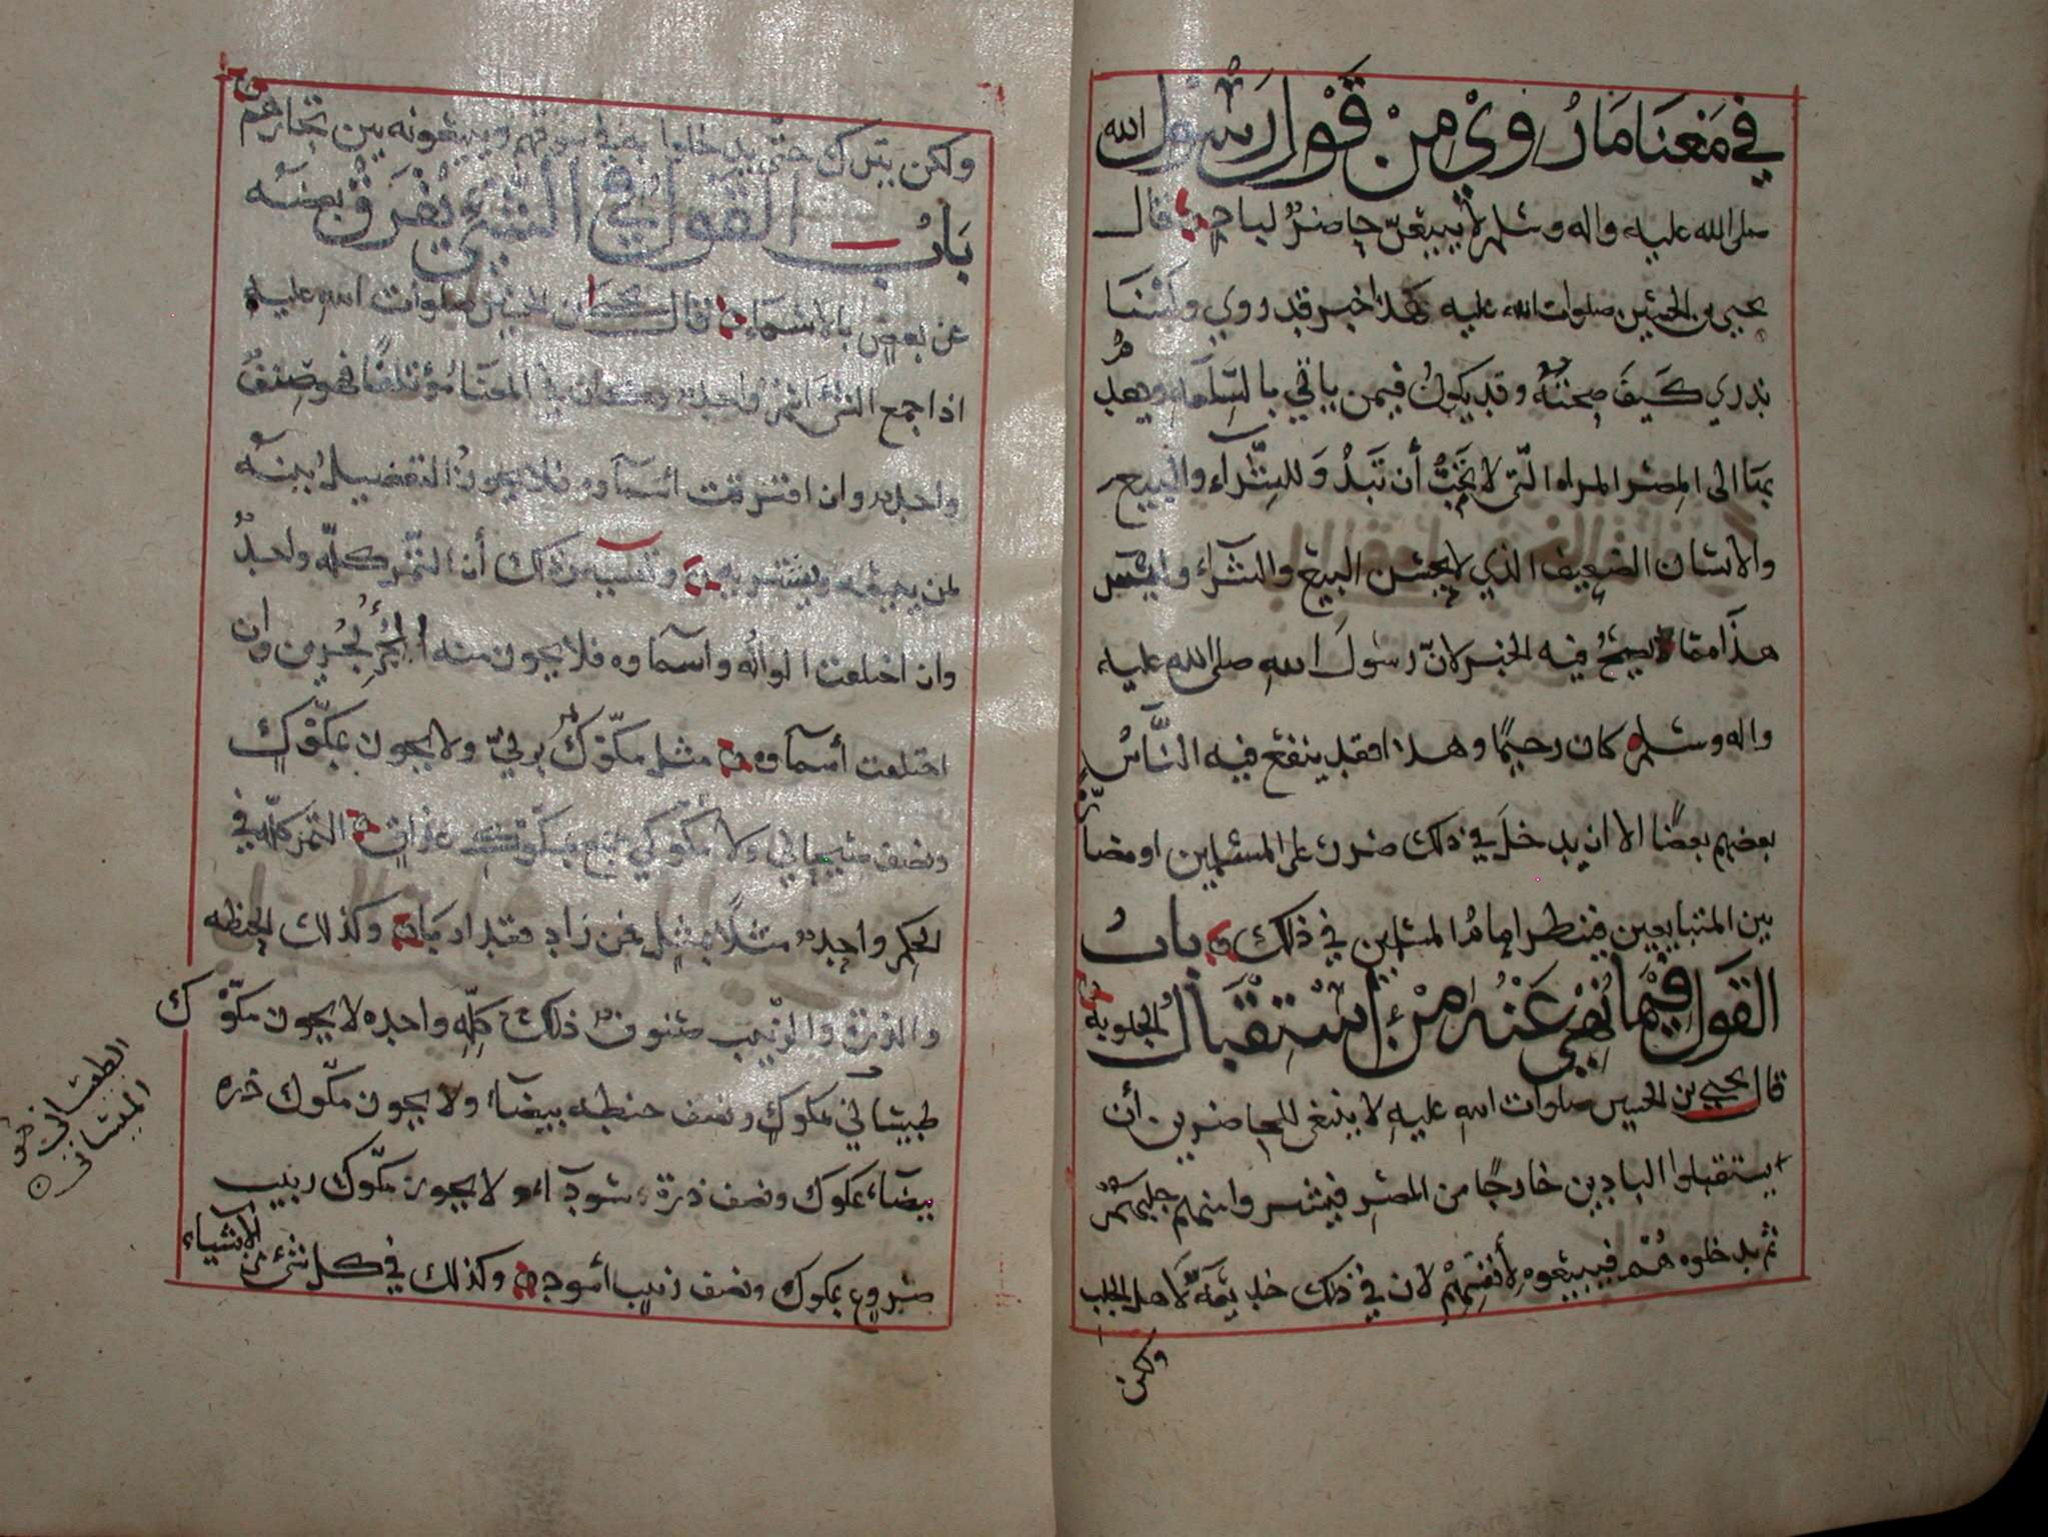 في معنا ما روي من قول رسول الله
صلى الله عليه واله وسلم لا يبيعن حاضر لباد قال
يحيى بن الحسين صلوات الله عليه هذا خبر قد روي ولسنا
ندري كيف صحته وقد يكون فيمن ياتي بالسلعه ويقدم
بها الى المصر المراه التي لا تحب أن تبدو للشراء والبيع
والانسان الضعيف الذي لا يحسن البيع والشراء وليس
هذا مما يصح فيه الخبر لان رسول الله صلى الله عليه
واله وسلم كان رحيما وهذا فقد ينفع فيه الناس
بعضهم بعضا الا ان يدخل في ذلك ضرر على المسلمين او مضارة
بين المتبايعين فينظر إمام المسلمين في ذلك باب
القول فيما نهي عنه من استقبال الجلوبه
قال يحيى بن الحسين صلوات الله عليه لا ينبغي للحاضرين أن
يستقبلوا البادين خارجا من المصر فيشتروا منهم جليبتهم
ثم يدخلوه هم فيبيعوه لأنفسهم لان في ذلك خديعة لاهل الجلب
ولكن
ولكن يترك حتى يدخلوا به في سوقهم ويبيعونه بين تجارهم
باب القول في الشيء يفرق بعضه
عن بعض بالاسماء قال يحيى بن الحسين صلوات الله عليه
اذا جمع الشيء اسم واحد وكان في المعنا مؤتلفا فهو صنف
واحد وان افترقت اسماوه فلا يجوز التفضيل بينه
لمن يبيعه ويشتريه وتفسير ذلك أن التمر كله واحد
وان اختلفت الوانه واسماوه فلا يجوز منه الجزء بجزين وان
اختلفت أسماوه مثل مكوك برني ولا يجوز بمكوك
ونصف ولا مكوكي بمكوك التمر كله في
الحكم واحد مثلا بمثل فمن زاد فقد اربا وكذلك الحنطه
والذرة والزبيب صنوف ذلك كله واحده لا يجوز مكوك
بمكوك ونصف حنطه بيضا ولا يجوز مكوك ذره
بيضاء بمكوك ونصف ذرة سوداء ولا يجوز مكوك زبيب
بمكوك ونصف زبيب أسود وكذلك في كل شيء من الاشياء